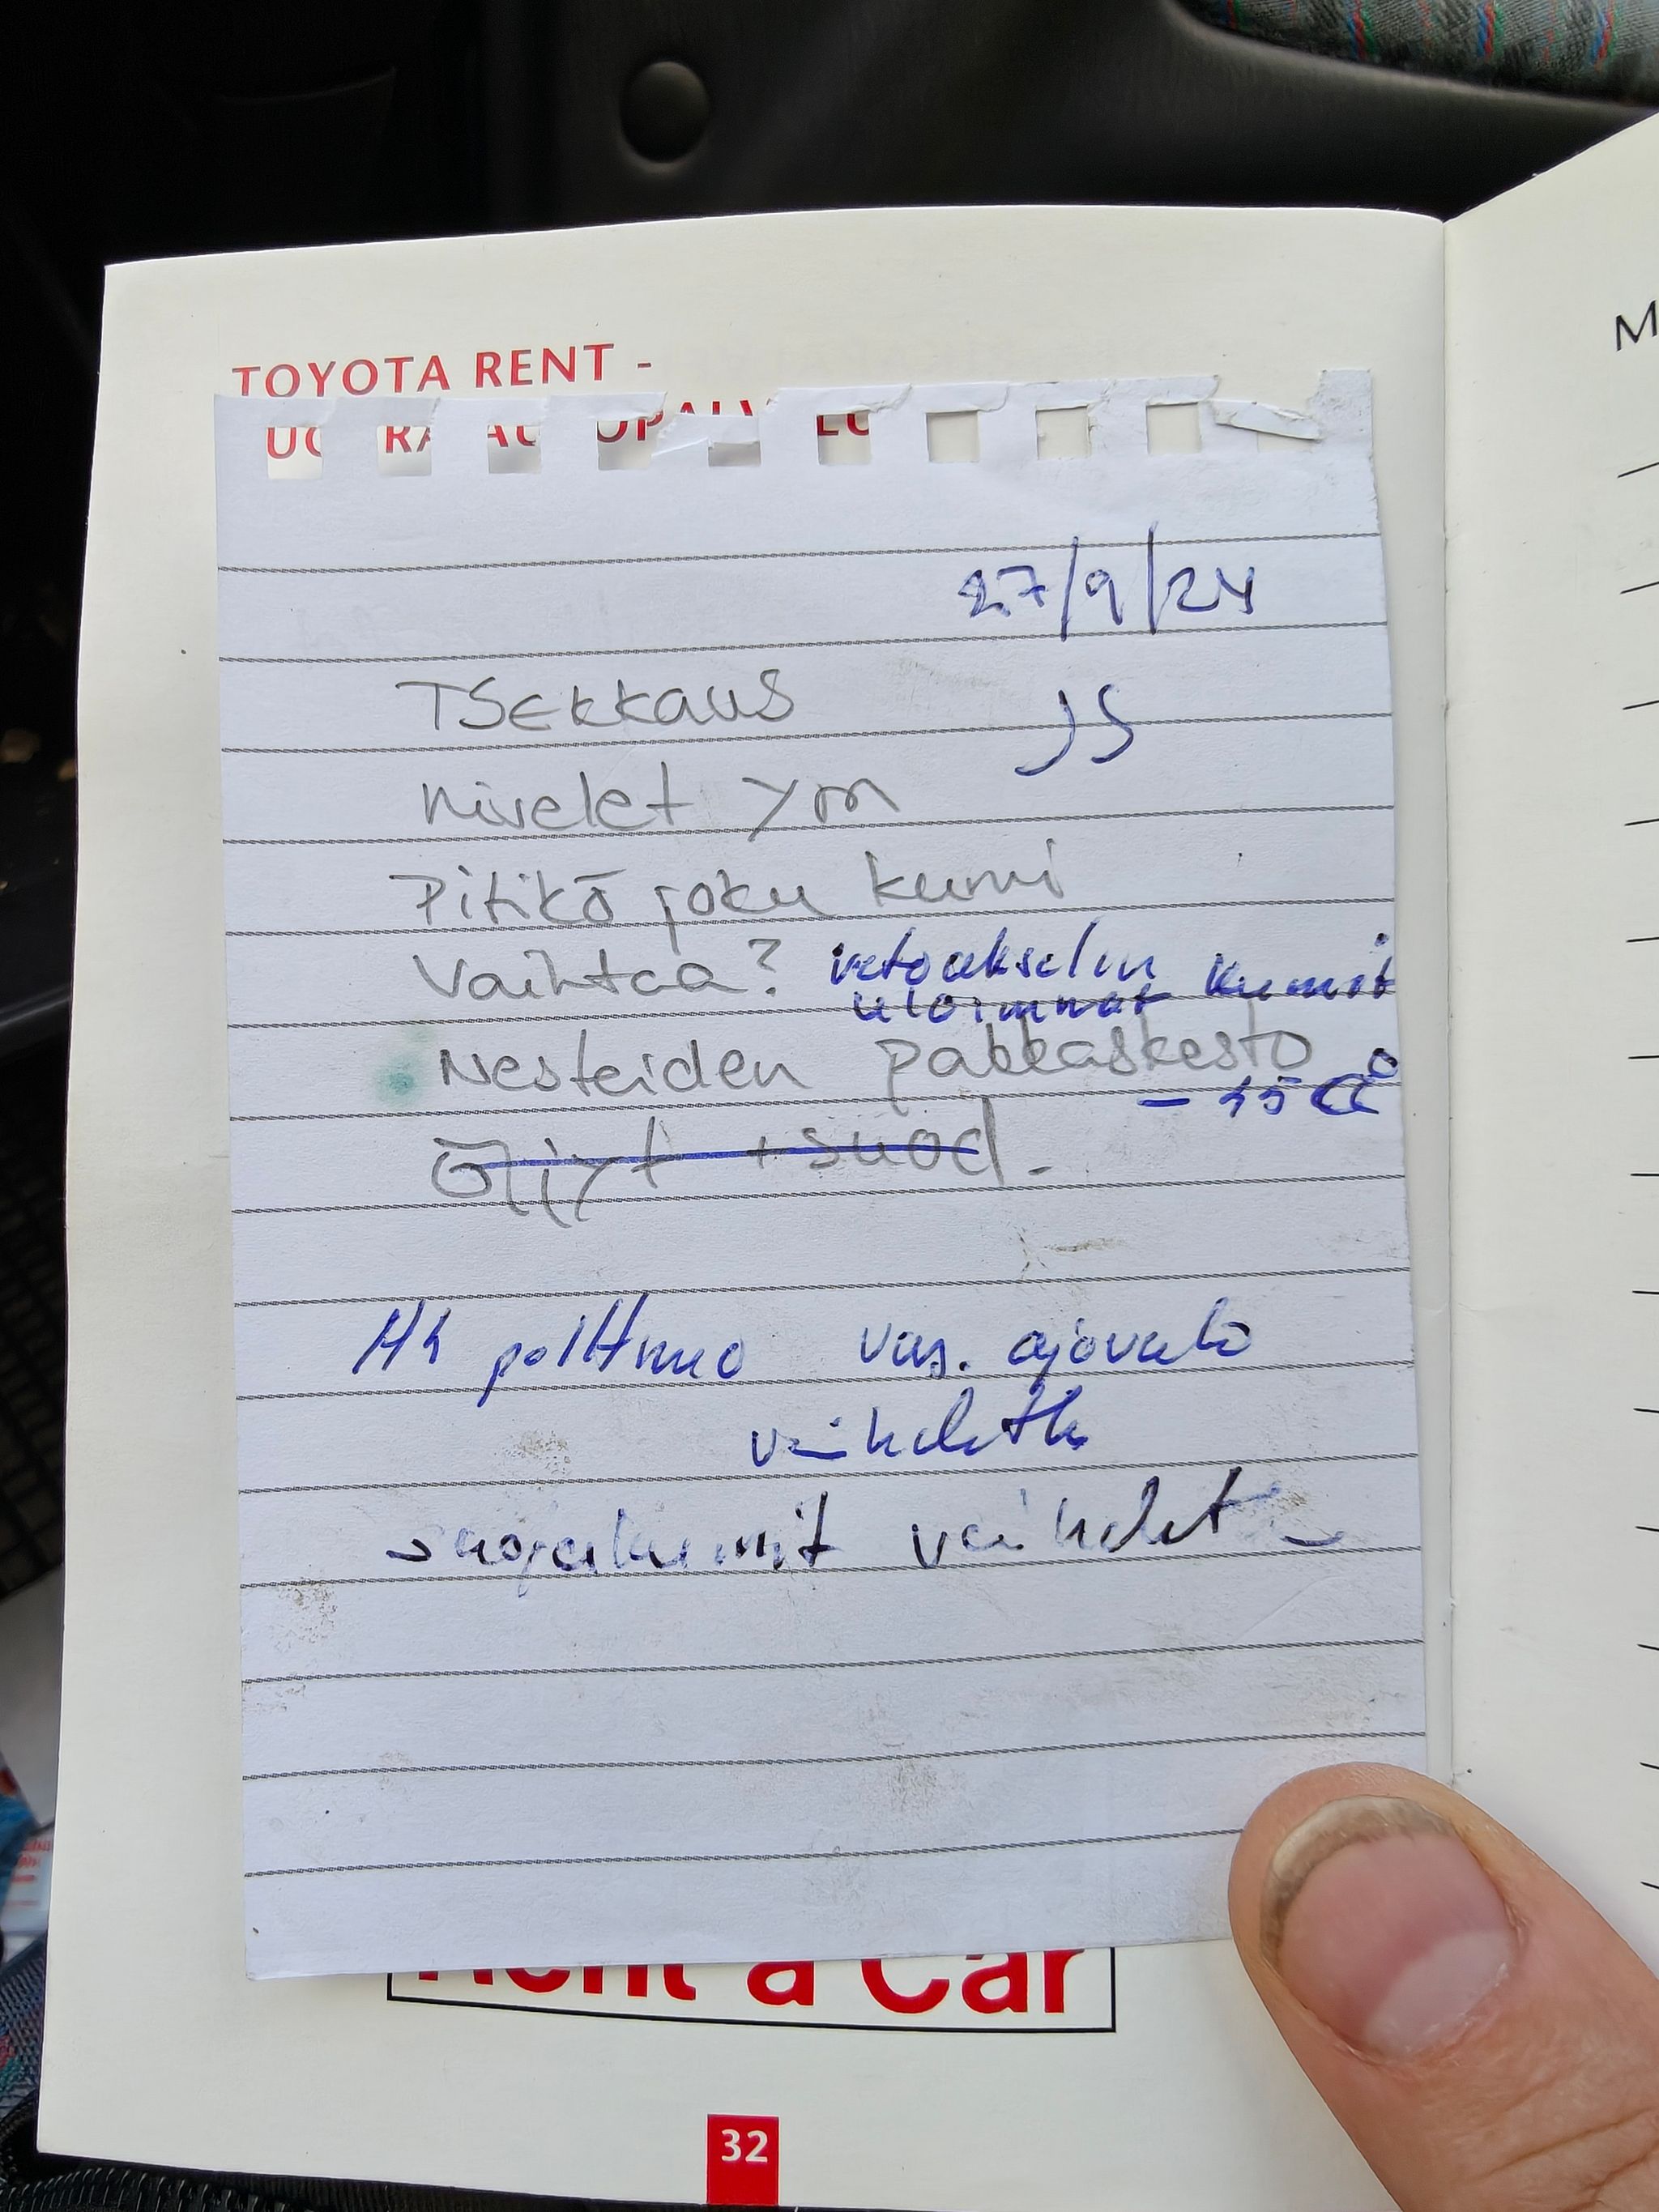 TOYOTA RENT -
27/9/24
TSEKKAUS
JS
nivelet ym
Pitikö joku kumi
Vaihtaa? vetoakselin kumit
uloimmat
Nesteiden pakkaskesto
- 35 C°
Öljyt + suod.
H4 polttimo vas. ajovalo
vaihdettu
suojakumit vaihdet
Rent a Car
32
M